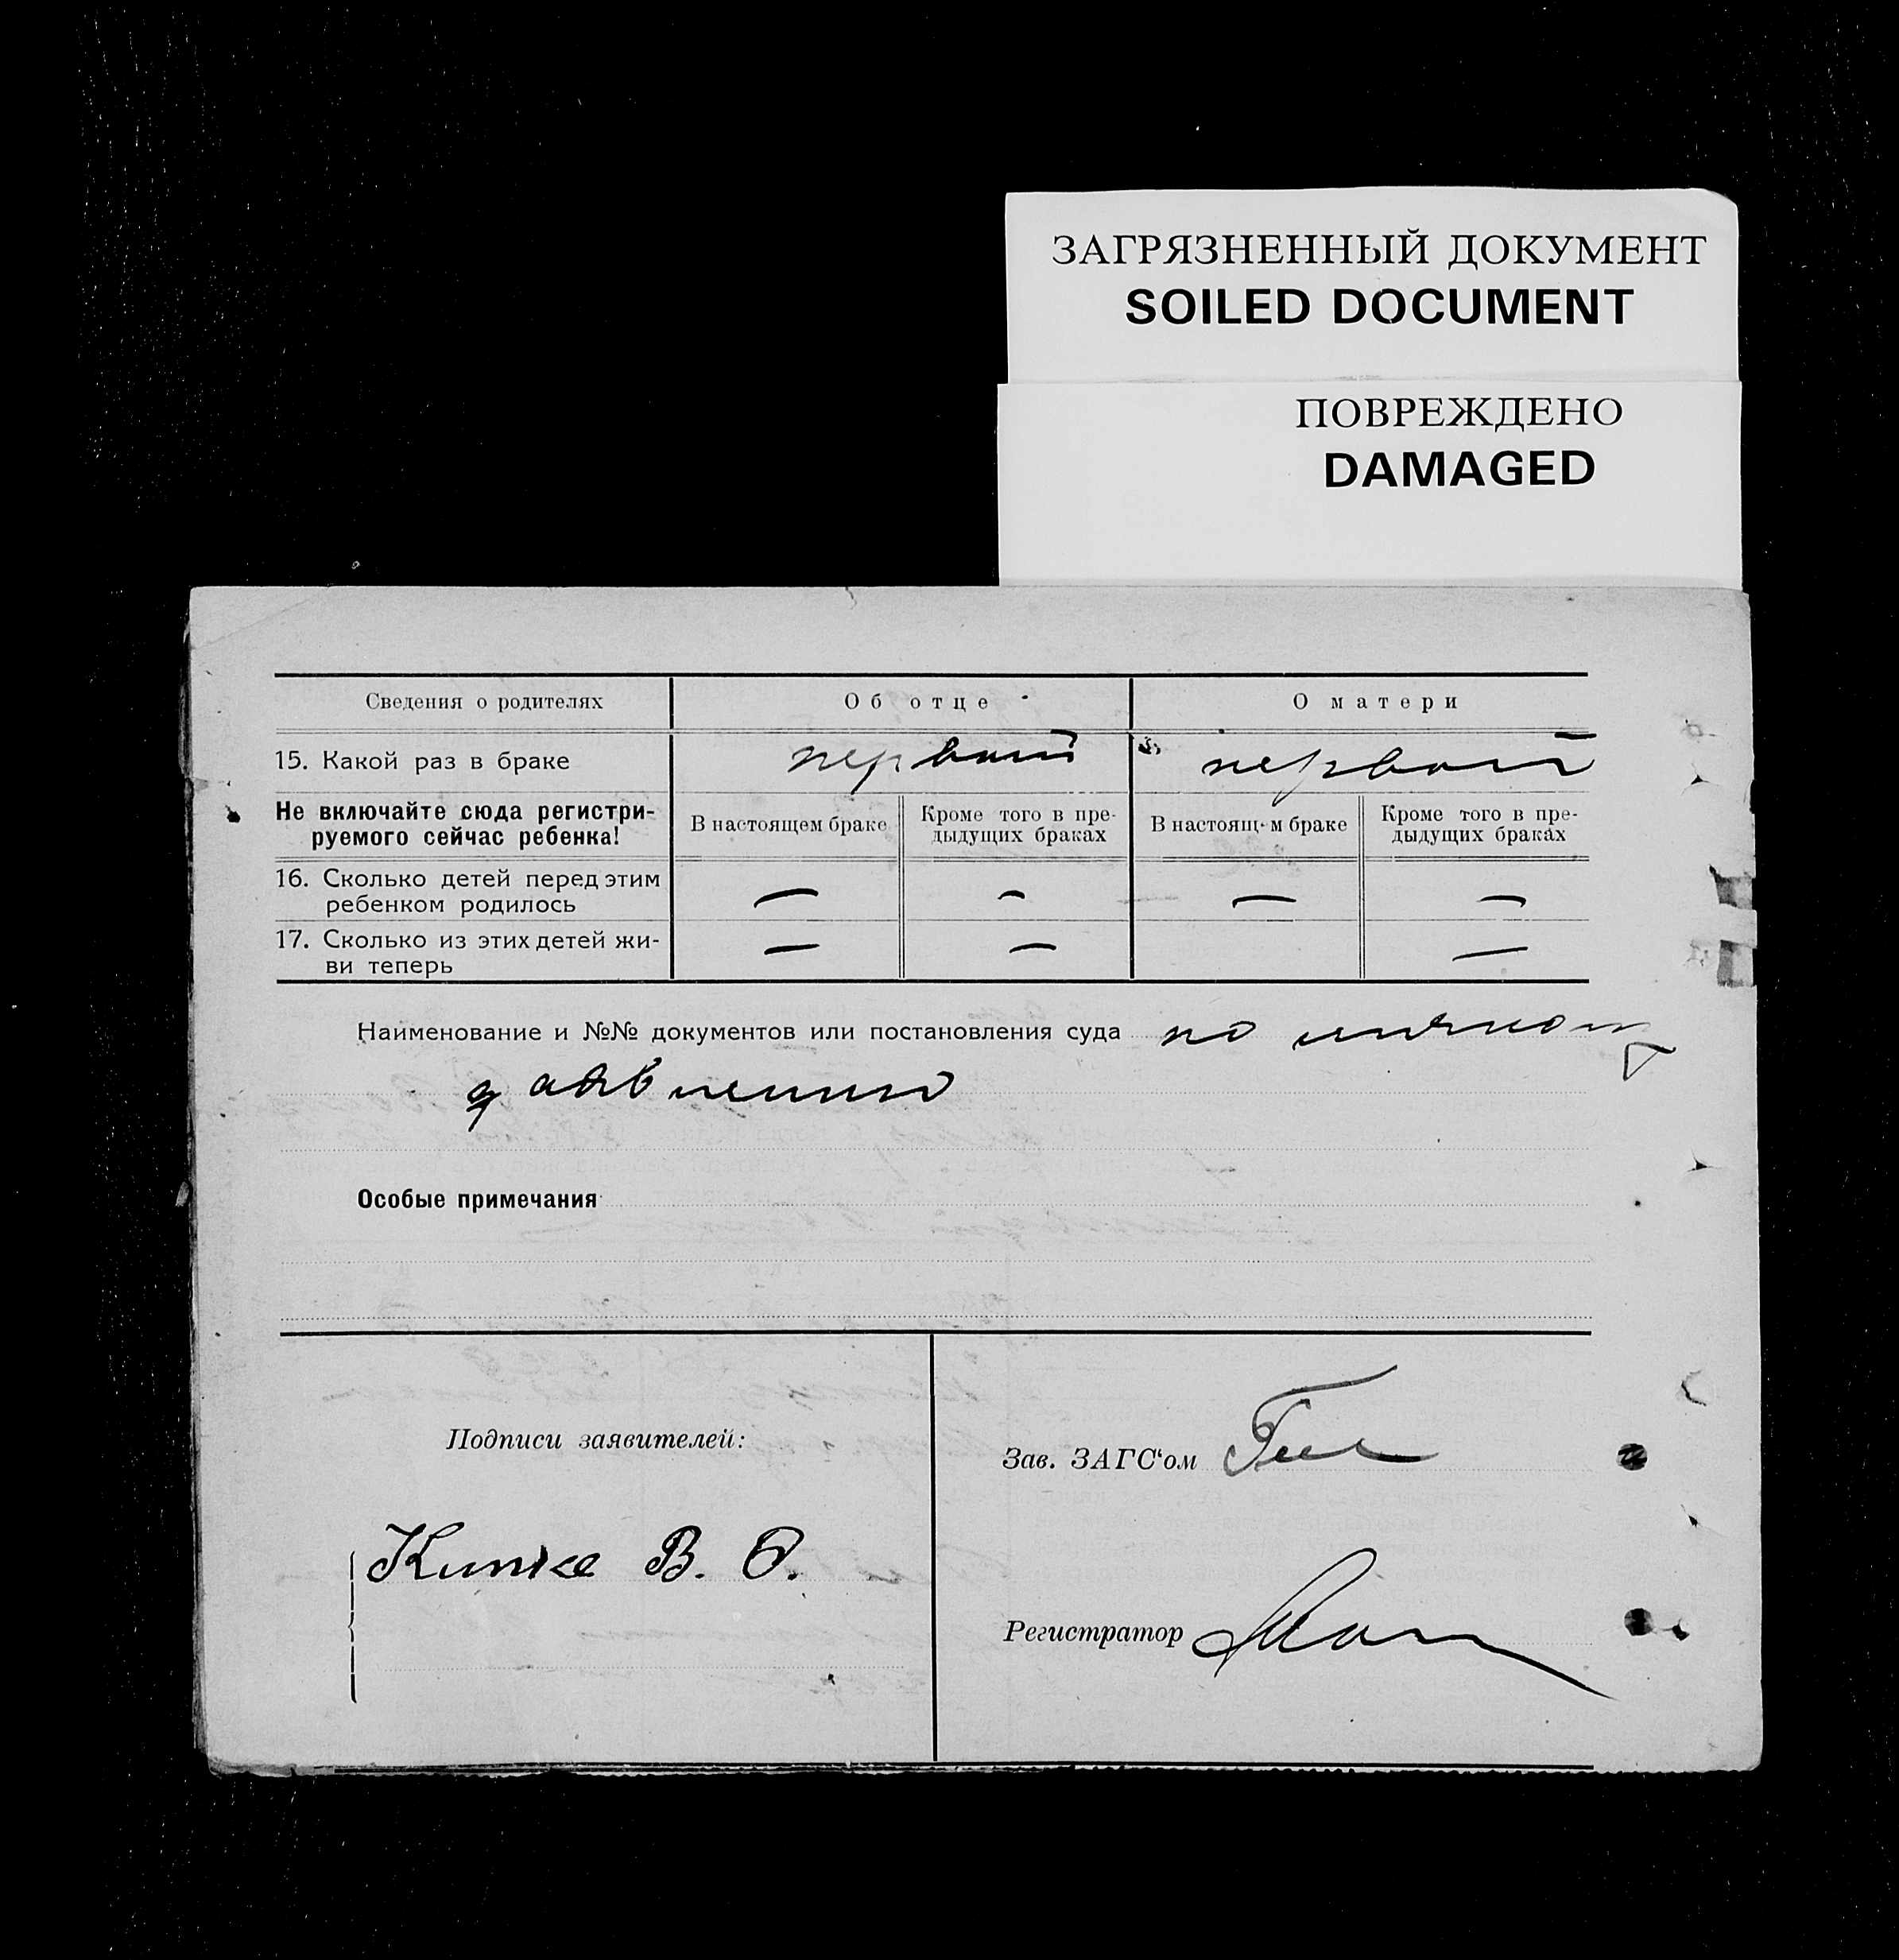 ЗАГРЯЗНЕННЫЙ ДОКУМЕНТ
SOILED DOCUMENT
ПОВРЕЖДЕНО
DAMAGED
Сведения о родителях Об отце О матери
15. Какой раз в браке первый первый
Не включайте сюда регистри-
руемого сейчас ребенка!
В настоящем браке
Кроме того в пре-
дыдущих браках
В настоящ м браке
Кроме того в пре-
дыдущих браках
16. Сколько детей перед этим
ребенком родилось — — — —
17. Сколько из этих детей жи-
ви теперь — — —
Наименование и №№ документов или постановления суда по личному
заявлению
Особые примечания
Подписи заявителей:
В. О.
Зав. ЗАГС'ом
Регистратор